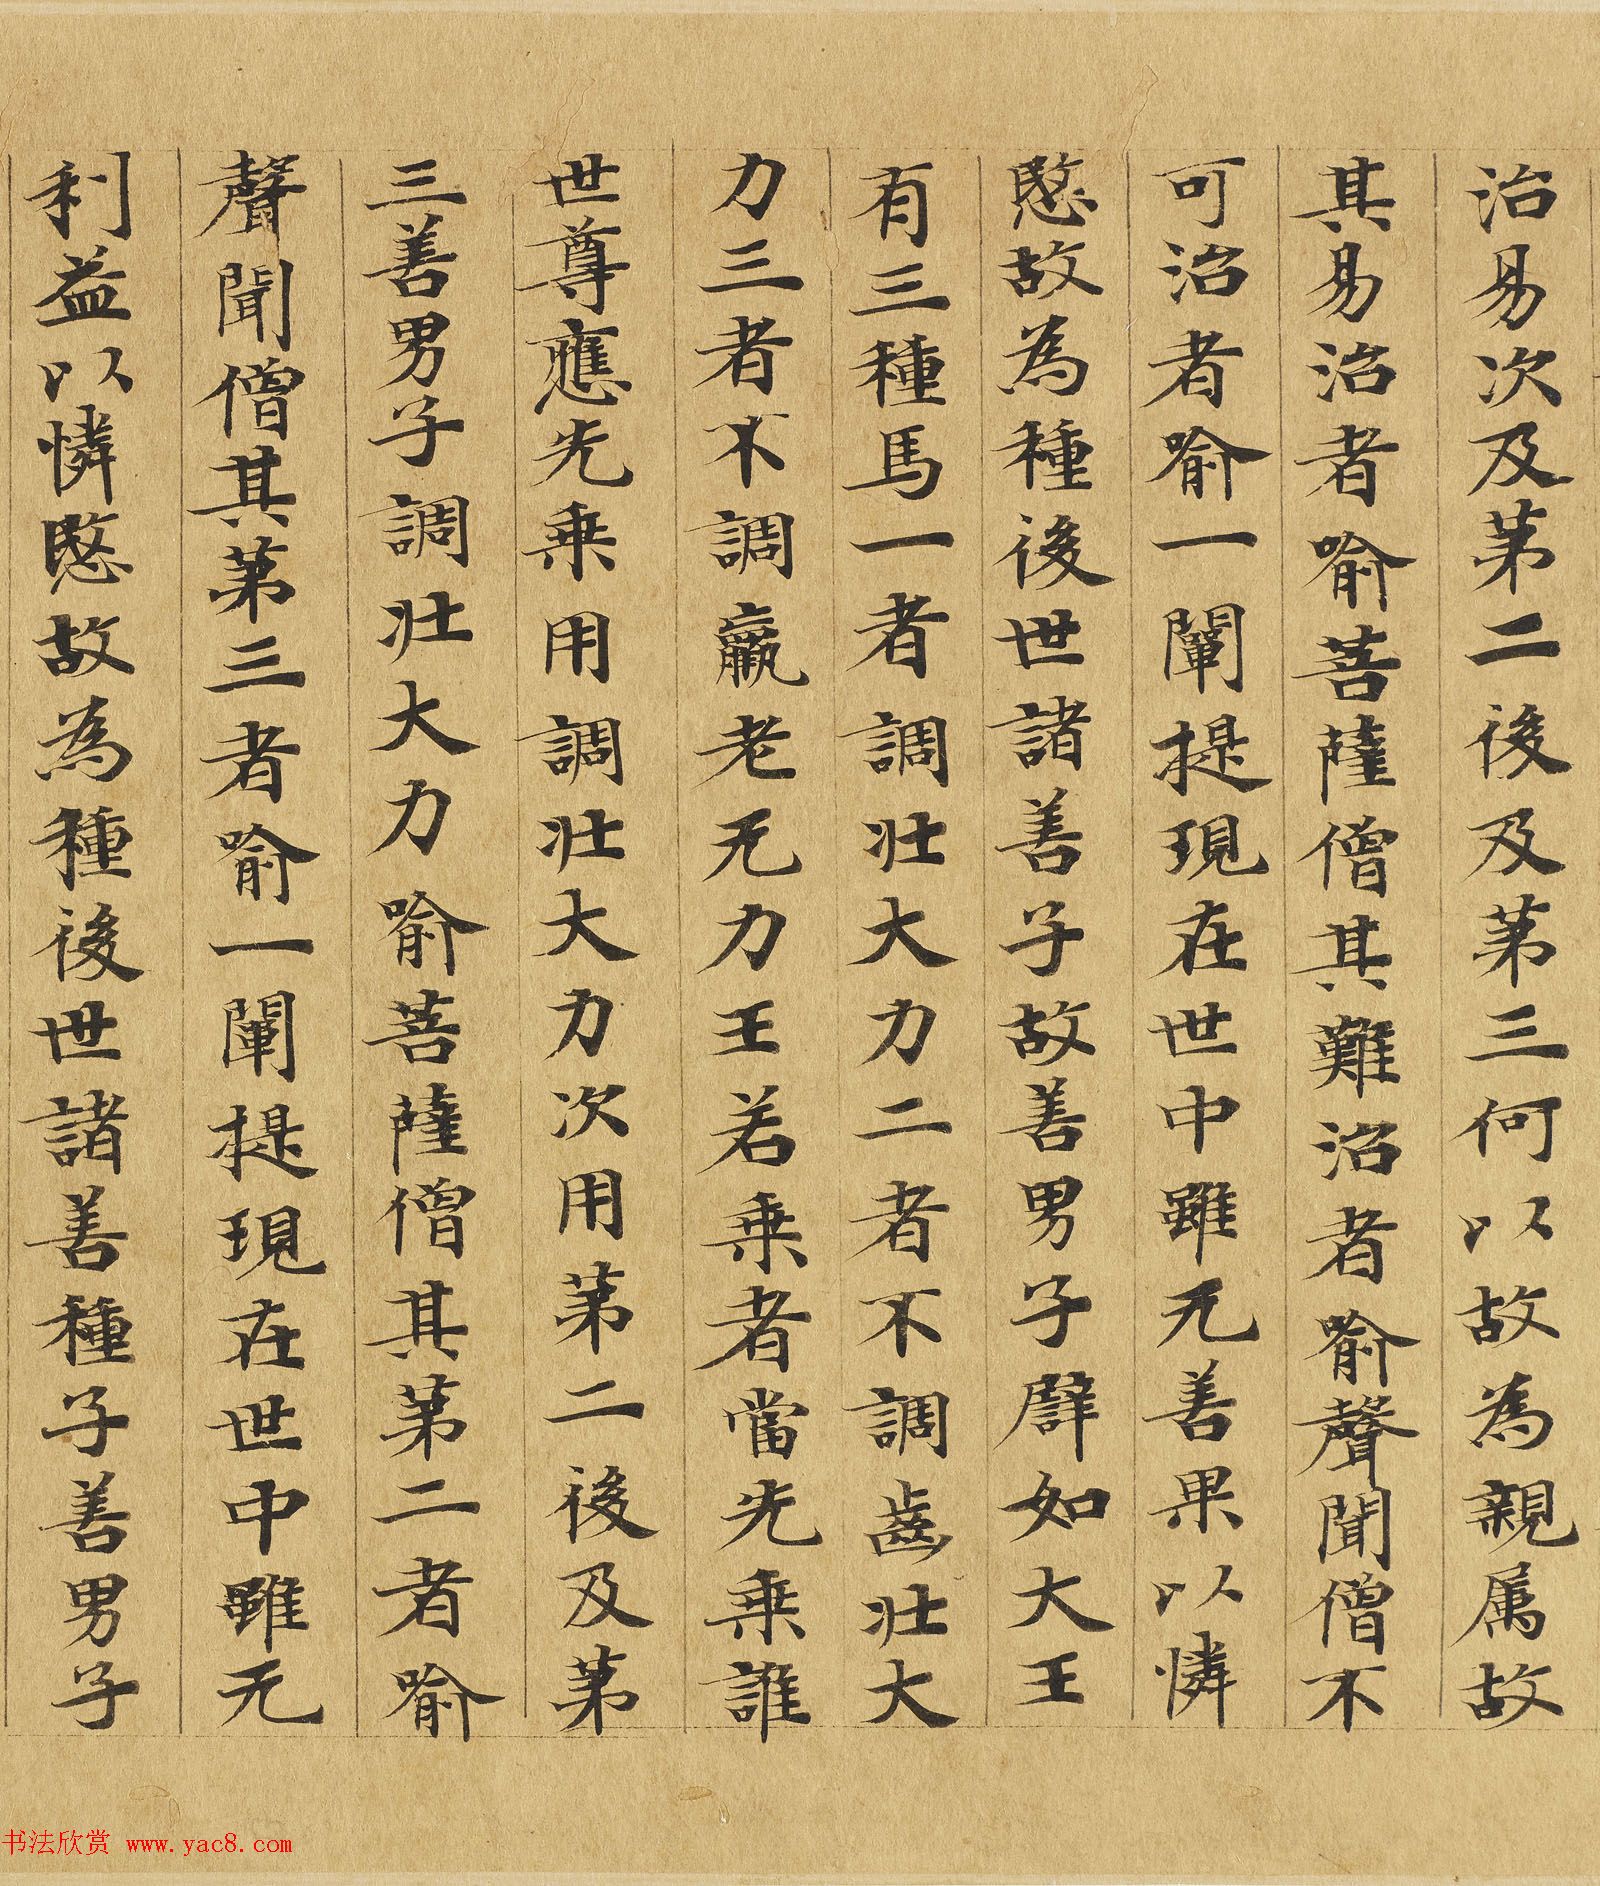 治易次及苐二後及苐三何以故為親属故
其易治者喻菩薩僧其難治者喻聲聞僧不
可治者喻一闡提現在世中雖无善果以憐
愍故為種後世諸善子故善男子譬如大王
有三種馬一者調壯大力二者不調齒壯大
力三者不調羸老无力王若乗者當先乗誰
世尊應先乗用調壯大力次用苐二後及苐
三善男子調壯大力喻菩薩僧其苐二者喻
聲聞僧其苐三者喻一闡提現在世中雖无
利益以憐愍故為種後世諸善種子善男子
书法欣赏 www.yac8.com